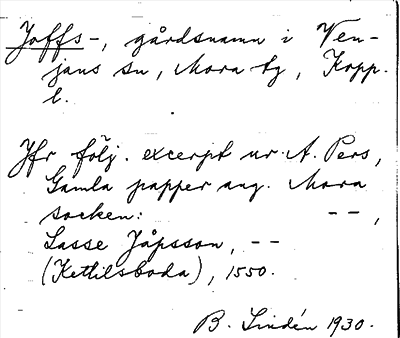 Joffs-, gårdsnamn i Ven-
jans sn, Mora tg, Kopp.
l.
Jfr följ. excerpt ur A. Pers,
Gamla papper ang. Mora
socken: -- ,
Lasse Jåpsson, --
(Kettilsboda), 1550.
B. Lindén 1930.